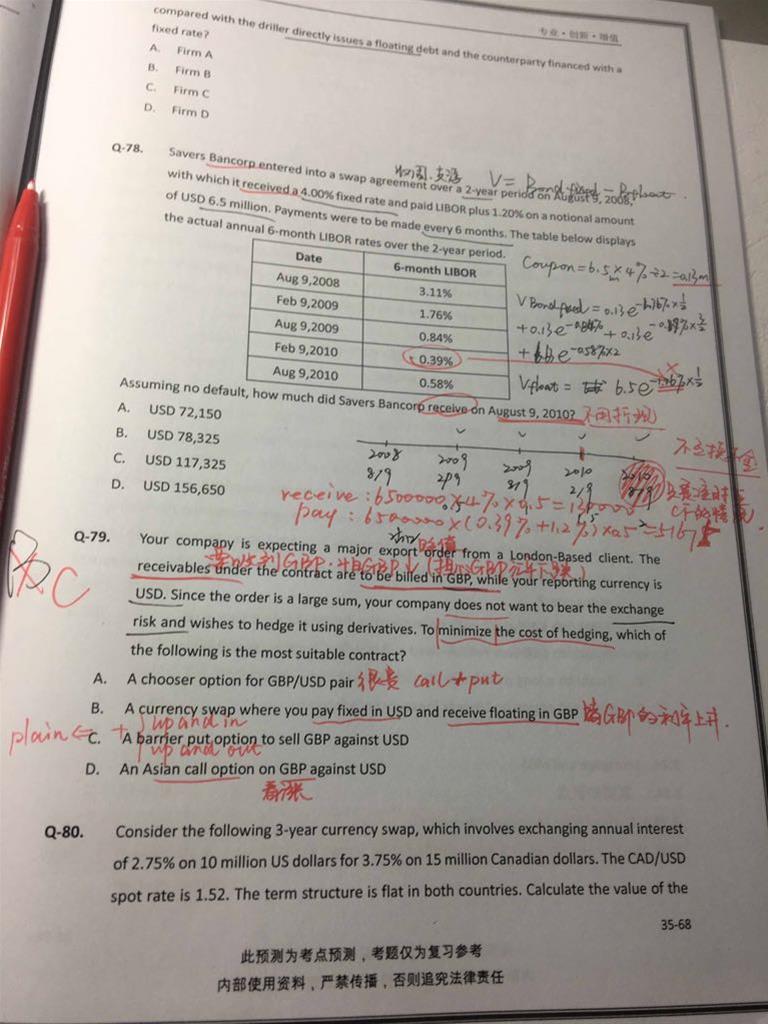 专业·创新·增值
compared with the driller directly issues a floating debt and the counterparty financed with a
fixed rate?
A. Firm A
B. Firm B
C. Firm C
D. Firm D
Q-78. Savers Bancorp entered into a swap agreement over a 2-year period on August 9, 2008,
with which it received a 4.00% fixed rate and paid LIBOR plus 1.20% on a notional amount
of USD 6.5 million. Payments were to be made every 6 months. The table below displays
the actual annual 6-month LIBOR rates over the 2-year period.
Date 6-month LIBOR
Aug 9,2008 3.11%
Feb 9,2009 1.76%
Aug 9,2009 0.84%
Feb 9,2010 0.39%
Aug 9,2010 0.58%
Coupon = 6.5m × 4% ÷ 2 = 0.13m
Assuming no default, how much did Savers Bancorp receive on August 9, 2010? 不用折现
A. USD 72,150
B. USD 78,325
C. USD 117,325
D. USD 156,650
2008 2009 2009 2010
receive : 6500000 × 4% × 0.5 = 130000
Q-79. Your company is expecting a major export order from a London-Based client. The
receivables under the contract are to be billed in GBP, while your reporting currency is
USD. Since the order is a large sum, your company does not want to bear the exchange
risk and wishes to hedge it using derivatives. To minimize the cost of hedging, which of
the following is the most suitable contract?
A. A chooser option for GBP/USD pair 很贵 call + put
B. A currency swap where you pay fixed in USD and receive floating in GBP
up and in
plain C. A barrier put option to sell GBP against USD
up and out
D. An Asian call option on GBP against USD
看涨
Q-80. Consider the following 3-year currency swap, which involves exchanging annual interest
of 2.75% on 10 million US dollars for 3.75% on 15 million Canadian dollars. The CAD/USD
spot rate is 1.52. The term structure is flat in both countries. Calculate the value of the
35-68
此预测为考点预测，考题仅为复习参考
内部使用资料，严禁传播，否则追究法律责任